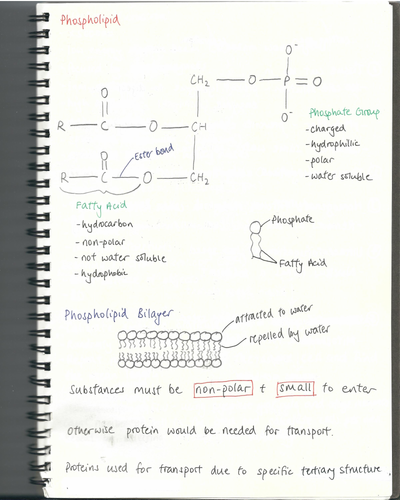 Phospholipid
O⁻
CH₂ — O — P = O
O
O⁻
R — C — O — CH
Phosphate Group
- charged
- hydrophillic
- polar
- water soluble
Ester bond
O
R — C — O — CH₂
Fatty Acid
- hydrocarbon
- non-polar
- not water soluble
- hydrophobic
Phosphate
Fatty Acid
Phospholipid Bilayer
attracted to water
repelled by water
Substances must be non-polar + small to enter
otherwise protein would be needed for transport.
Proteins used for transport due to specific tertiary structure.